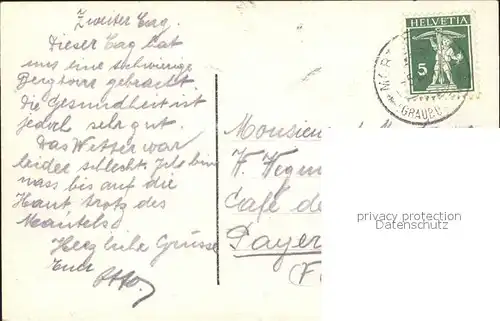 Zweiter Tag.
Dieser Tag hat
uns eine schwierige
Bergtour gebracht
die Gesundheit ist
jedoch sehr gut.
Das Wetter war
leider schlecht. Ich bin
nass bis auf die
Haut trotz des
Mantels.
Herzliche Grüsse
Euer
Otto.
HELVETIA
5
GRAUBÜ
Monsieur
F.
Café de
Payer
privacy protection
veikkos.com